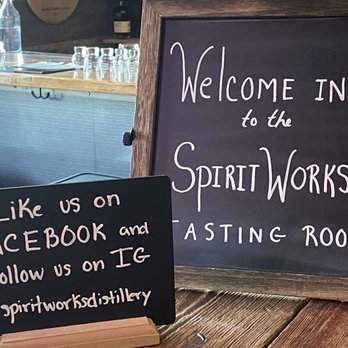 Welcome in
to the
Spirit Works
Tasting Roo
Like us on
ACEBOOK and
ollow us on IG
spiritworksdistillery